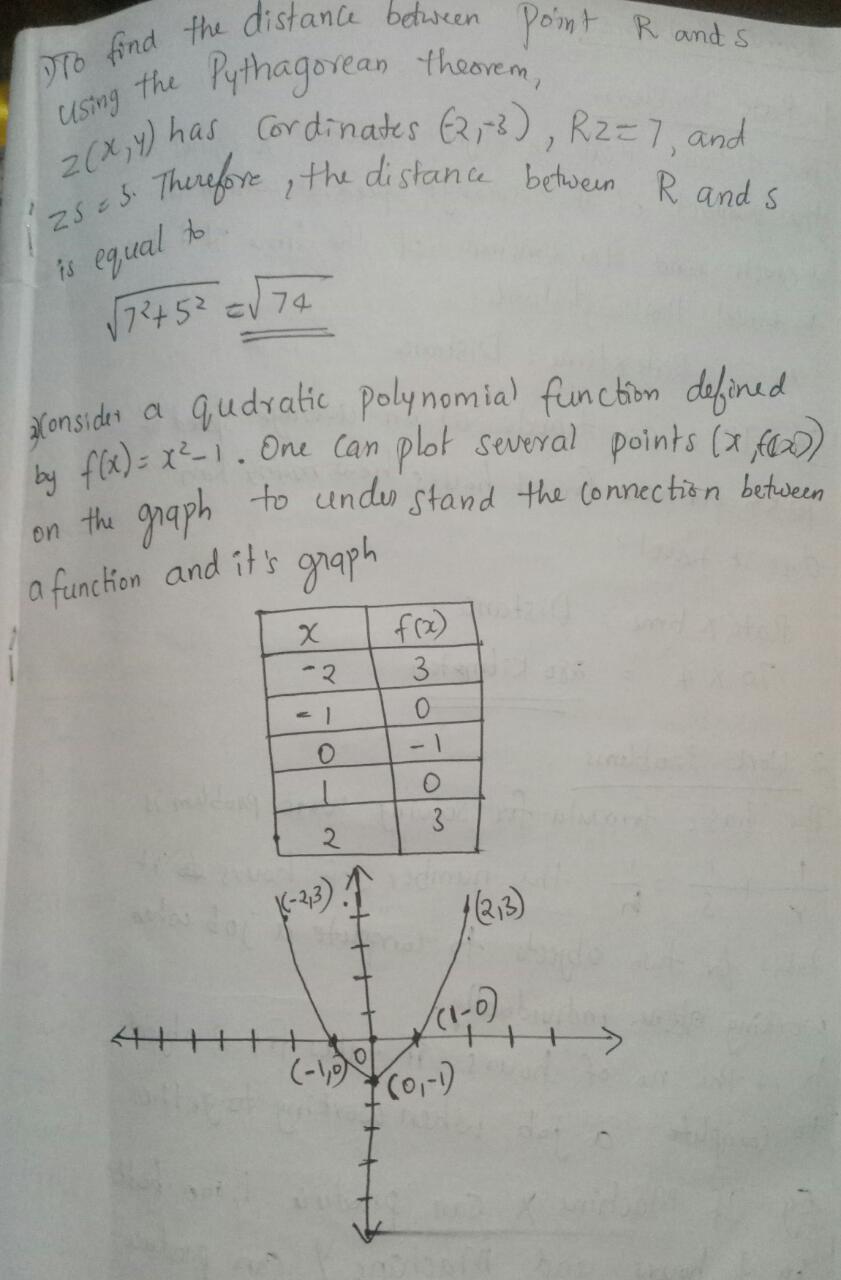 1) To find the distance between Point R and S
using the Pythagorean theorem,
z(x,y) has Cordinates (-2,-3), RZ=7, and
ZS = 5. Therefore, the distance between R and S
is equal to
√7²+5² = √74
2) Consider a qudratic polynomial function defined
by f(x) = x²-1. One Can plot several points (x, f(x))
on the graph to under stand the connection between
a function and it's graph
x f(x)
-2 3
-1 0
0 -1
1 0
2 3
(-2,3) (2,3)
(1-0)
0
(-1,0) (0,-1)